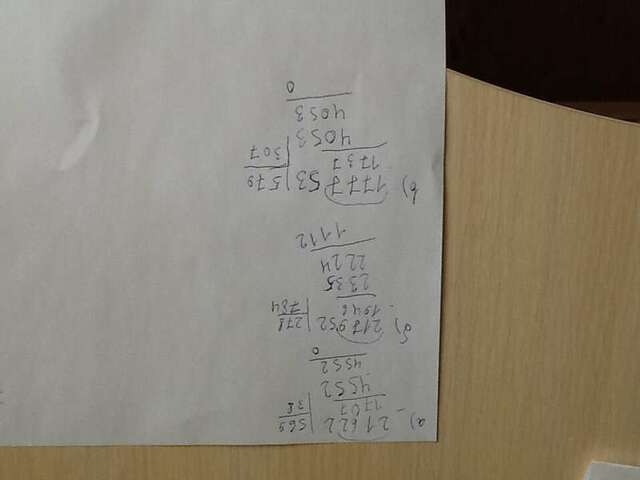 а) 21622 | 569
- 1707 | 38
4552
4552
0
б) 217952 | 278
- 1946 | 784
2335
2224
1112
в) 177753 | 579
1737 | 307
4053
4053
0